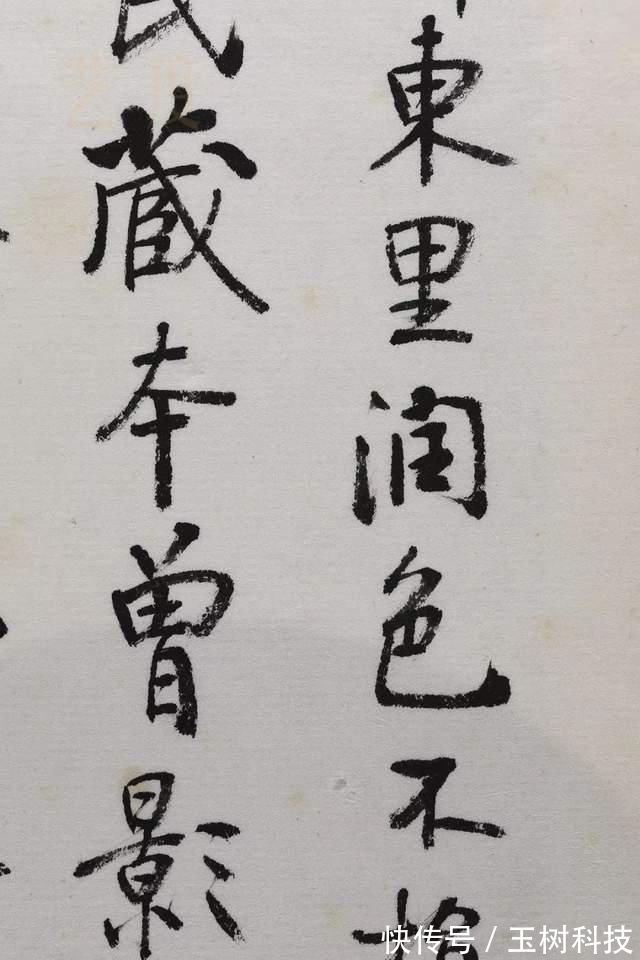 東里润色不
氏藏本曽影
快传号 / 玉树科技